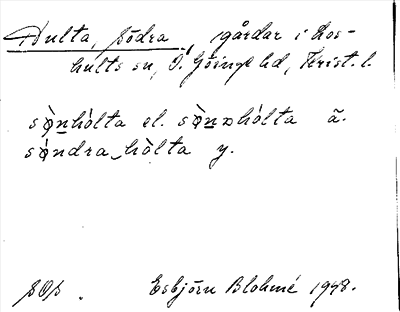 Hulta, Södra, gårdar i Los-
hults sn, Ö. Göinge hd, Krist. l.
sø̀nhólta el. sø̀nhólta ä.
sǿndra hòlta y.
Esbjörn Blohmé 1948.